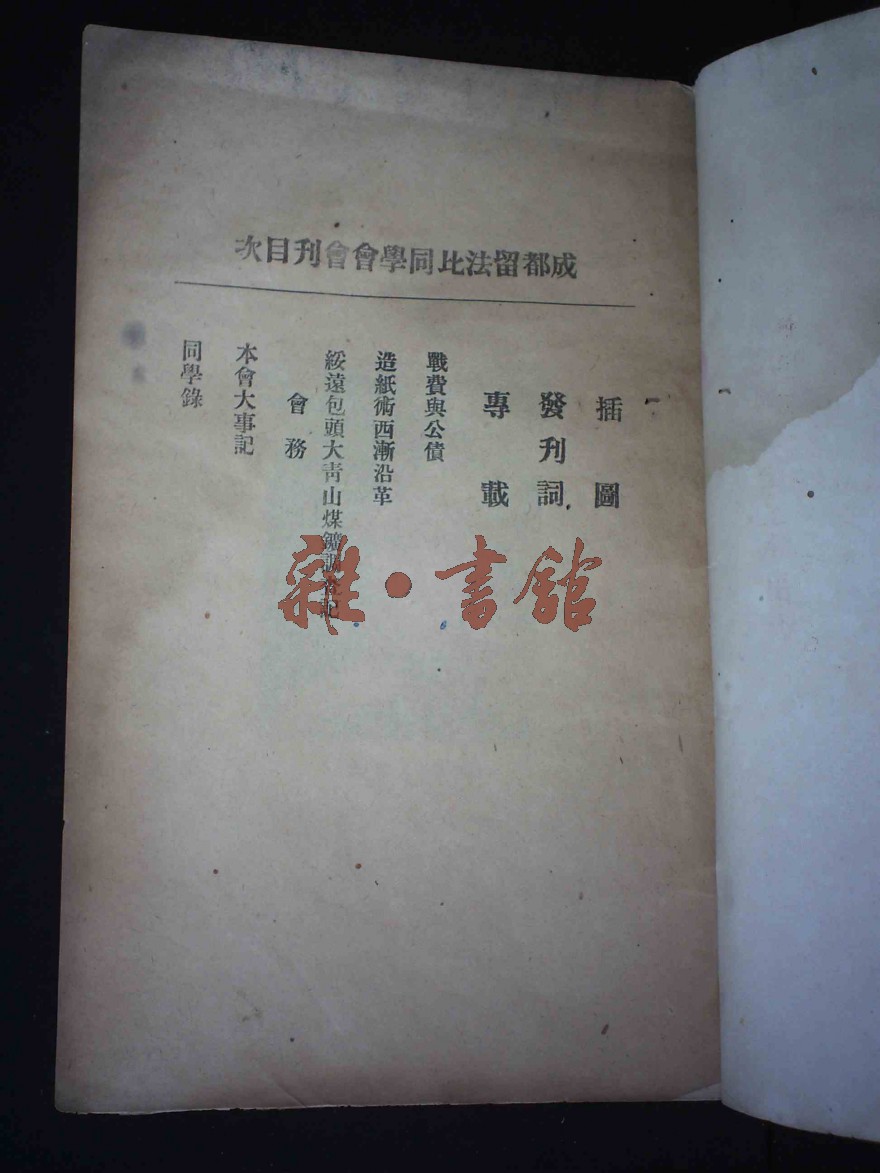 成都留法比同學會會刊目次
插圖
發刊詞
專載
戰費與公債
造紙術西漸沿革
綏遠包頭大青山煤鑛調查記
會務
本會大事記
同學錄
雜·書館